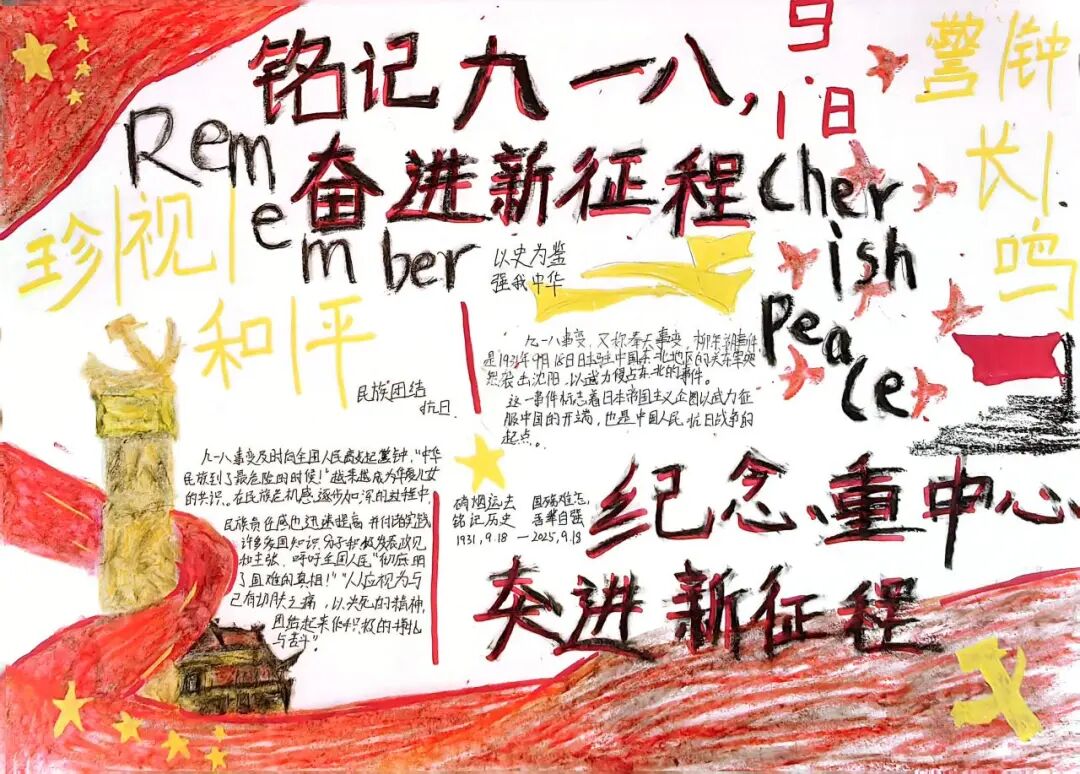 铭记九一八，
奋进新征程
9.18
警钟
长
鸣
Remember
Cherish
Peace
珍视
和平
以史为鉴
强我中华
民族团结
抗日
九一八事变，又称奉天事变、柳条湖事件
是1931年9月18日日本驻中国东北地区的关东军突
然袭击沈阳，以武力侵占东北的事件。
这一事件标志着日本帝国主义企图以武力征
服中国的开端，也是中国人民抗日战争的
起点。
九一八事变及时向全国人民敲起警钟，“中华
民族到了最危险的时候！”越来越成为华夏儿女
的共识。在民族危机感逐步加深的过程中
民族责任感也迅速提高并付诸实践
许多爱国知识分子积极发表政见
和主张，呼吁全国人民“彻底明
了国难的真相！”“人人应视为与
己有切肤之痛，以失死的精神，
团结起来作积极的挣扎
与苦斗”
硝烟远去 国殇难忘，
铭记历史 吾辈自强
1931，9.18 — 2025，9.18
纪念、重中心、
奋进新征程